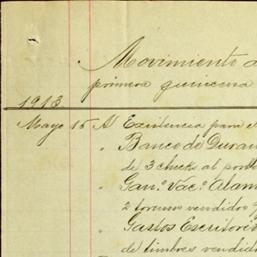 Movimiento d
primera quincena
1913
Mayo 15 A Existencia para e
" Banco de Duran
de 3 checks al port
" Gan.ª Vac.ª Alam
2 toros vendidos
" Gastos Escritorio
de timbres vendid